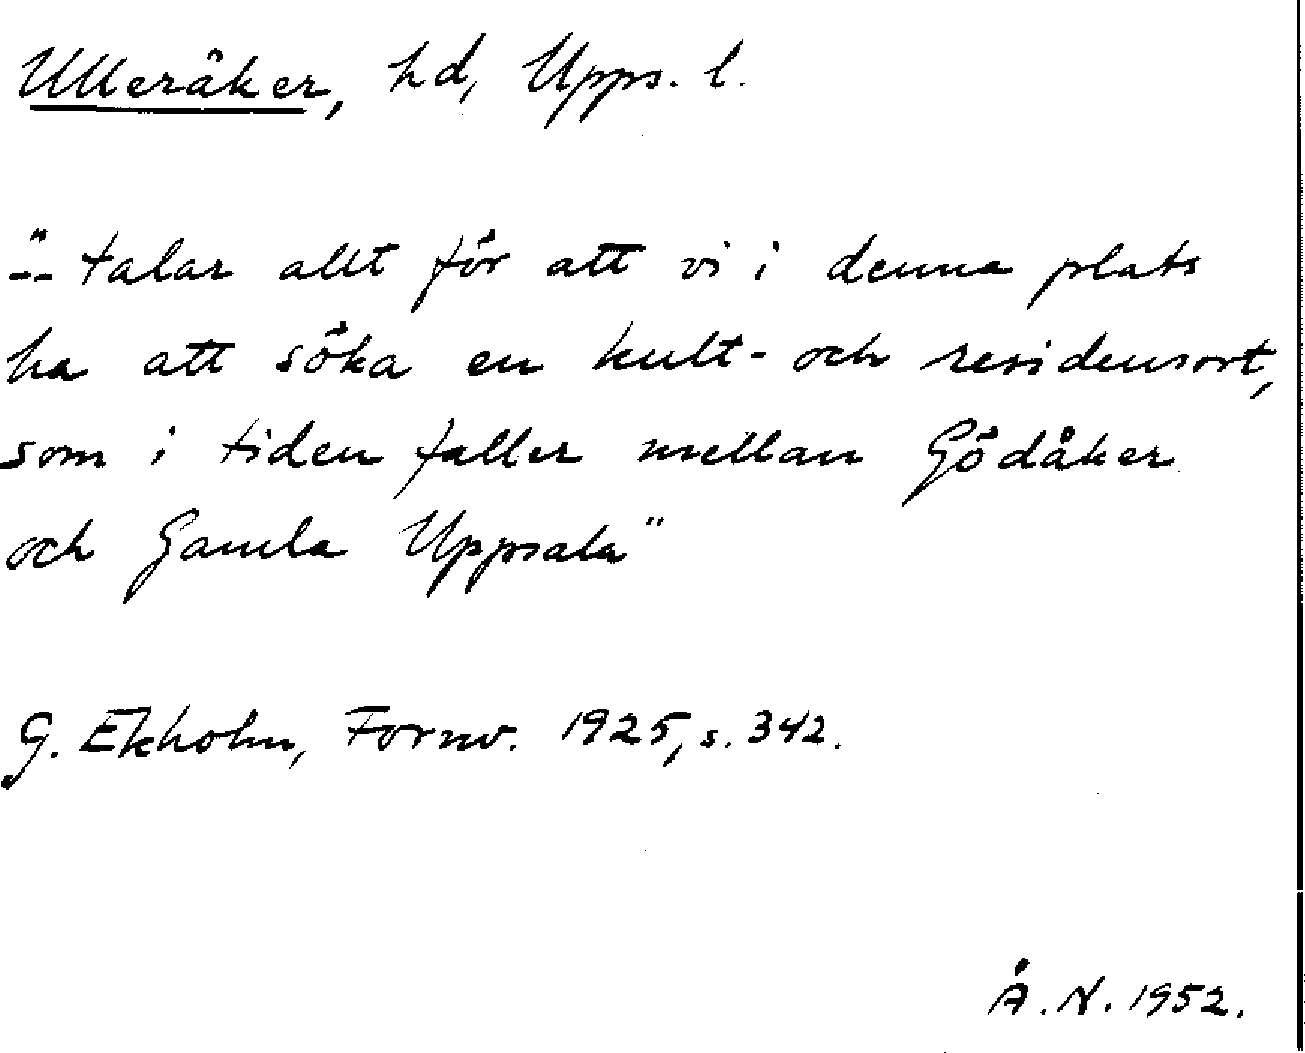 Ulleråker, hd, Upps. l.
"-- talar allt för att vi i denna plats
ha att söka en kult- och residensort,
som i tiden faller mellan Gödåker
och Gamla Uppsala"
G. Ekholm, Fornv. 1925, s. 342.
Å. N. 1952.